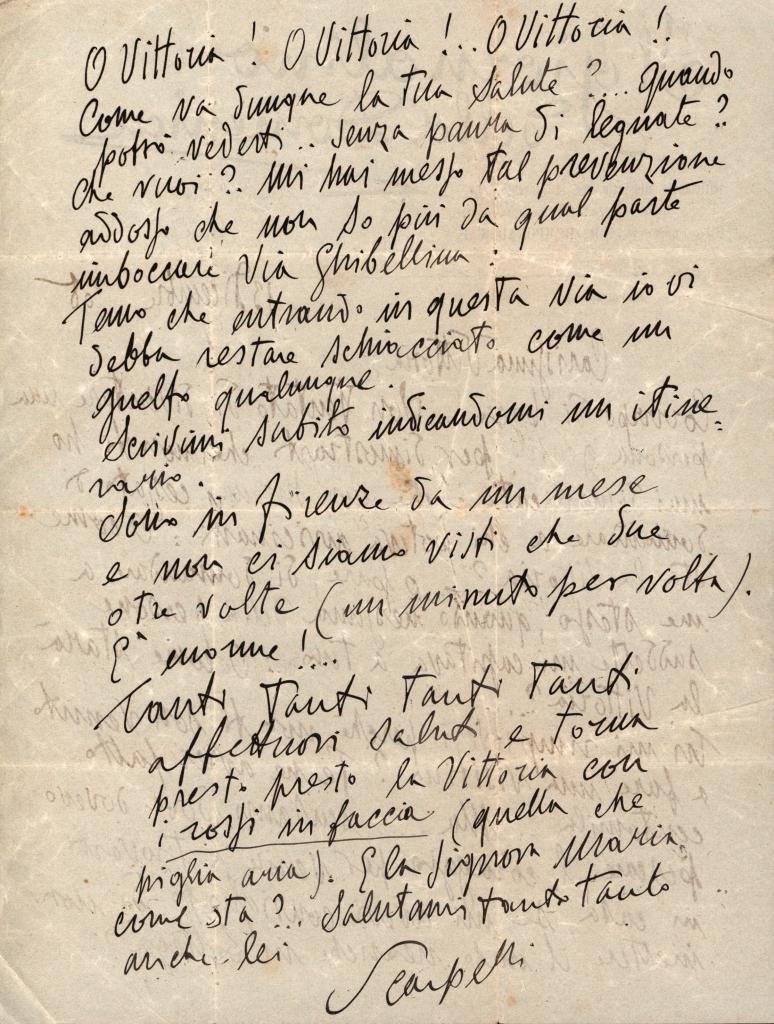 O Vittoria ! O Vittoria !.. O Vittoria !.
Come va dunque la tua salute ?.... quando
potrò vederti .. senza paura di legnate ?
Che vuoi ?. Mi hai messo tal prevenzione
addosso che non so più da qual parte
imboccare Via Ghibellina :
Temo che entrando in questa via io vi
debba restare schiacciato come un
guelfo qualunque.
Scrivimi subito indicandomi un itine=
rario.
Sono in Firenze da un mese
e non ci siamo visti che due
o tre volte (un minuto per volta).
E' enorme !....
Tanti tanti tanti tanti
affettuosi saluti e torna
presto presto la Vittoria con
i rossi in faccia (quella che
piglia aria). E la Signora Maria
come sta ?.. Salutami tanto tanto
anche lei
Scarpelli